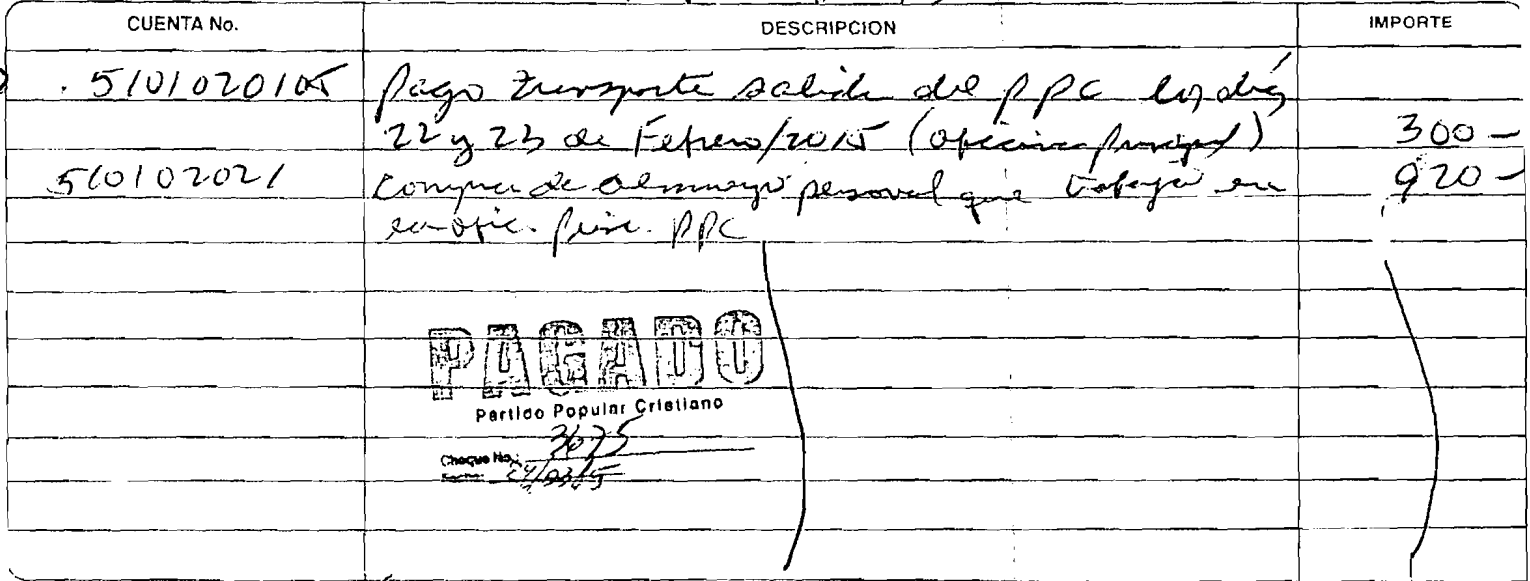 CUENTA No. DESCRIPCION IMPORTE
5101020105 Pago transporte salida del PPC los días
22 y 23 de Febrero/2015 (oficina principal) 300-
510102021 Compra de almuerzo personal que trabajó en 920-
la ofic. princ. PPC
PAGADO
Partido Popular Cristiano
Cheque No.: 3675